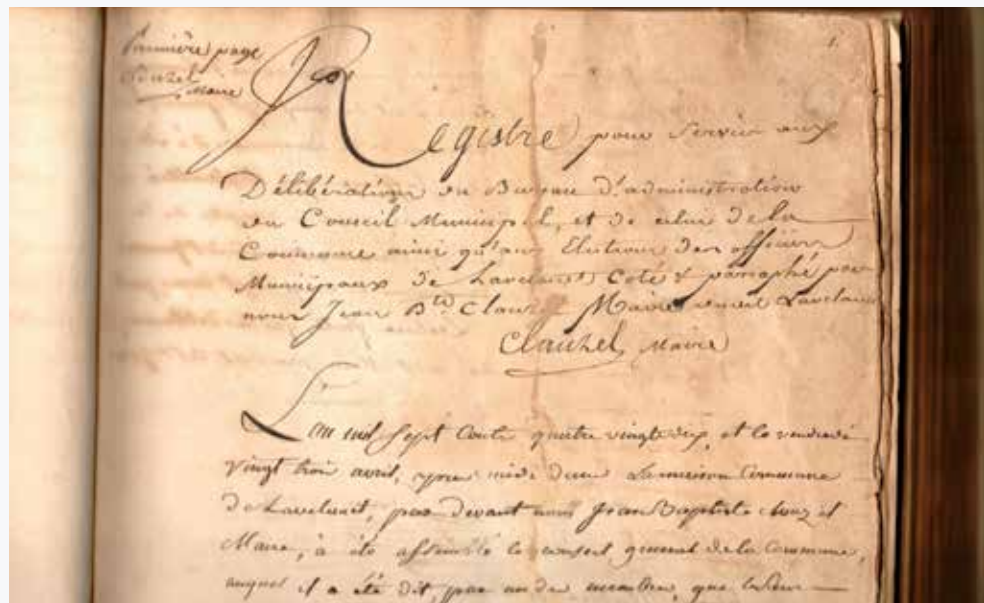 Première page
Clauzel
Maire
1.
Registre pour servir aux
Délibérations du Bureau d'administration
du Conseil Municipal, et de celui de la
Commune ainsi qu'aux Elections des officiers
Municipaux de Lavelanet Coté & paraphé par
nous Jean Bte Clauzel Maire
Clauzel, Maire
L'an mil sept cents quatre vingt dix, et le vendredi
vingt trois avril, apres midi dans la maison Commune
de Lavelanet, par devant nous Jean Baptiste Clauzel
Maire, à été assemblé le conseil general de la Commune,
auquel il a été dit, par un des membres, que